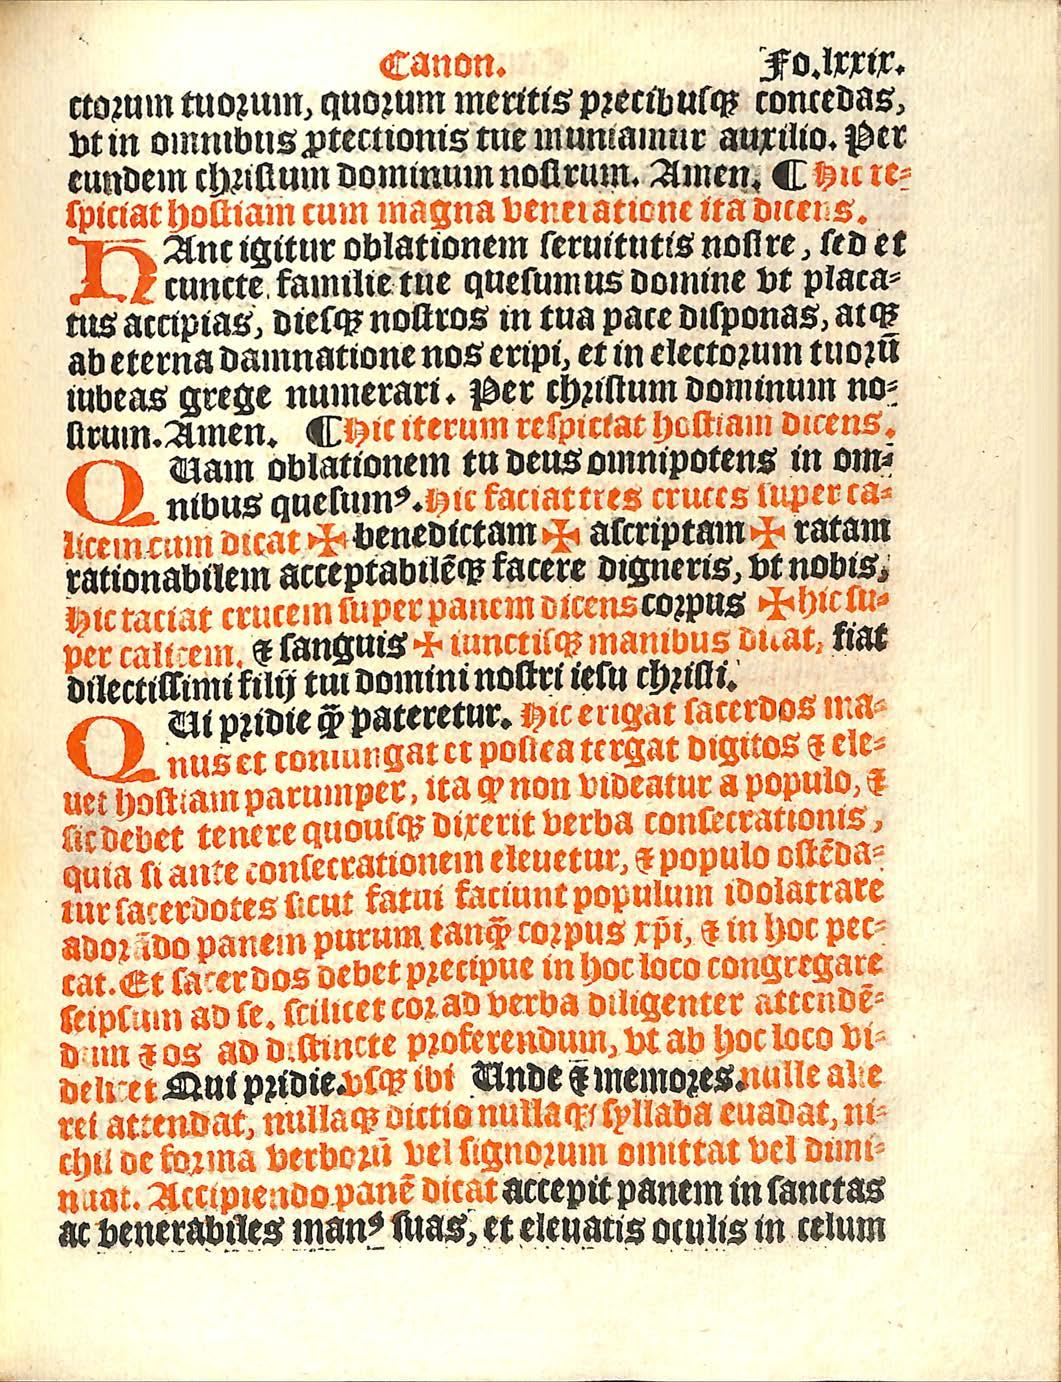 Canon. Fo.lxxix.
ctorum tuorum, quorum meritis precibusqꝫ concedas,
vt in omnibus ꝓtectionis tue muniamur auxilio. Per
eundem christum dominum nostrum. Amen. ¶ Hic re-
spiciat hostiam cum magna veneratione ita dicens.
HAnc igitur oblationem seruitutis nostre, sed et
cuncte familie tue quesumus domine vt placa-
tus accipias, diesqꝫ nostros in tua pace disponas, atqꝫ
ab eterna damnatione nos eripi, et in electorum tuorū
iubeas grege numerari. Per christum dominum no-
strum. Amen. ¶ Hic iterum respiciat hostiam dicens.
QUam oblationem tu deus omnipotens in om-
nibus quesumꝰ. Hic faciat tres cruces super ca-
licem cum dicat ✠ benedictam ✠ ascriptam ✠ ratam
rationabilem acceptabilēqꝫ facere digneris, vt nobis,
Hic faciat crucem super panem dicens corpus ✠ hic su-
per calicem. ⁊ sanguis ✠ iunctisqꝫ manibus dicat, fiat
dilectissimi filij tui domini nostri iesu christi.
QUi pridie qꝫ̄ pateretur. Hic erigat sacerdos ma-
nus et coniungat et postea tergat digitos ⁊ ele-
uet hostiam parumper, ita ꝙ non videatur a populo, ⁊
sic debet tenere quousqꝫ dixerit verba consecrationis,
quia si ante consecrationem eleuetur, ⁊ populo ostēda-
tur sacerdotes sicut fatui faciunt populum idolatrare
adorādo panem purum tanqꝫ̄ corpus xp̄i, ⁊ in hoc pec-
cat. Et sacerdos debet precipue in hoc loco congregare
seipsum ad se. scilicet cor ad verba diligenter attendē-
dum ⁊ os ad distincte proferendum, vt ab hoc loco vi-
delicet Qui pridie. vsqꝫ ibi Unde ⁊ memores. nulle alie
rei attendat, nullaqꝫ dictio nullaqꝫ syllaba euadat, ni-
chil de forma verborū vel signorum omittat vel dimi-
nuat. Accipiendo panē dicat accepit panem in sanctas
ac venerabiles manꝰ suas, et eleuatis oculis in celum